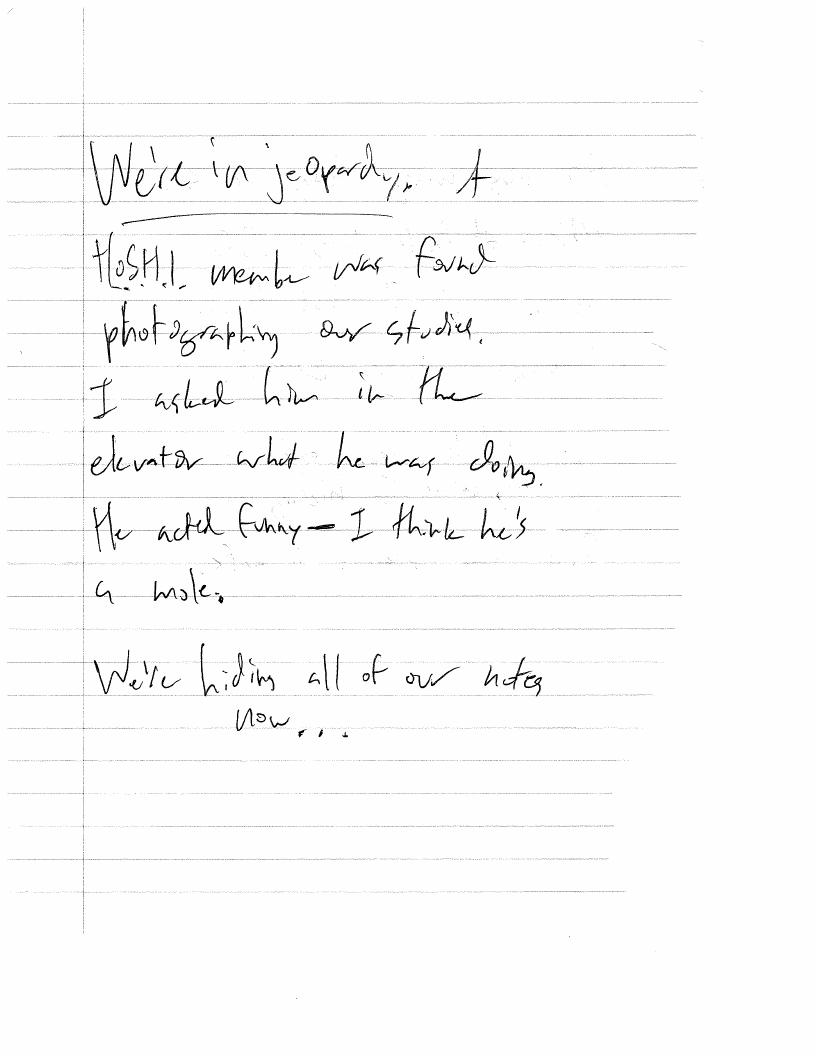 We're in jeopardy. A
H.O.S.H.I. member was found
photographing our studies.
I asked him in the
elevator what he was doing.
He acted funny — I think he's
a mole.
We're hiding all of our notes
now...